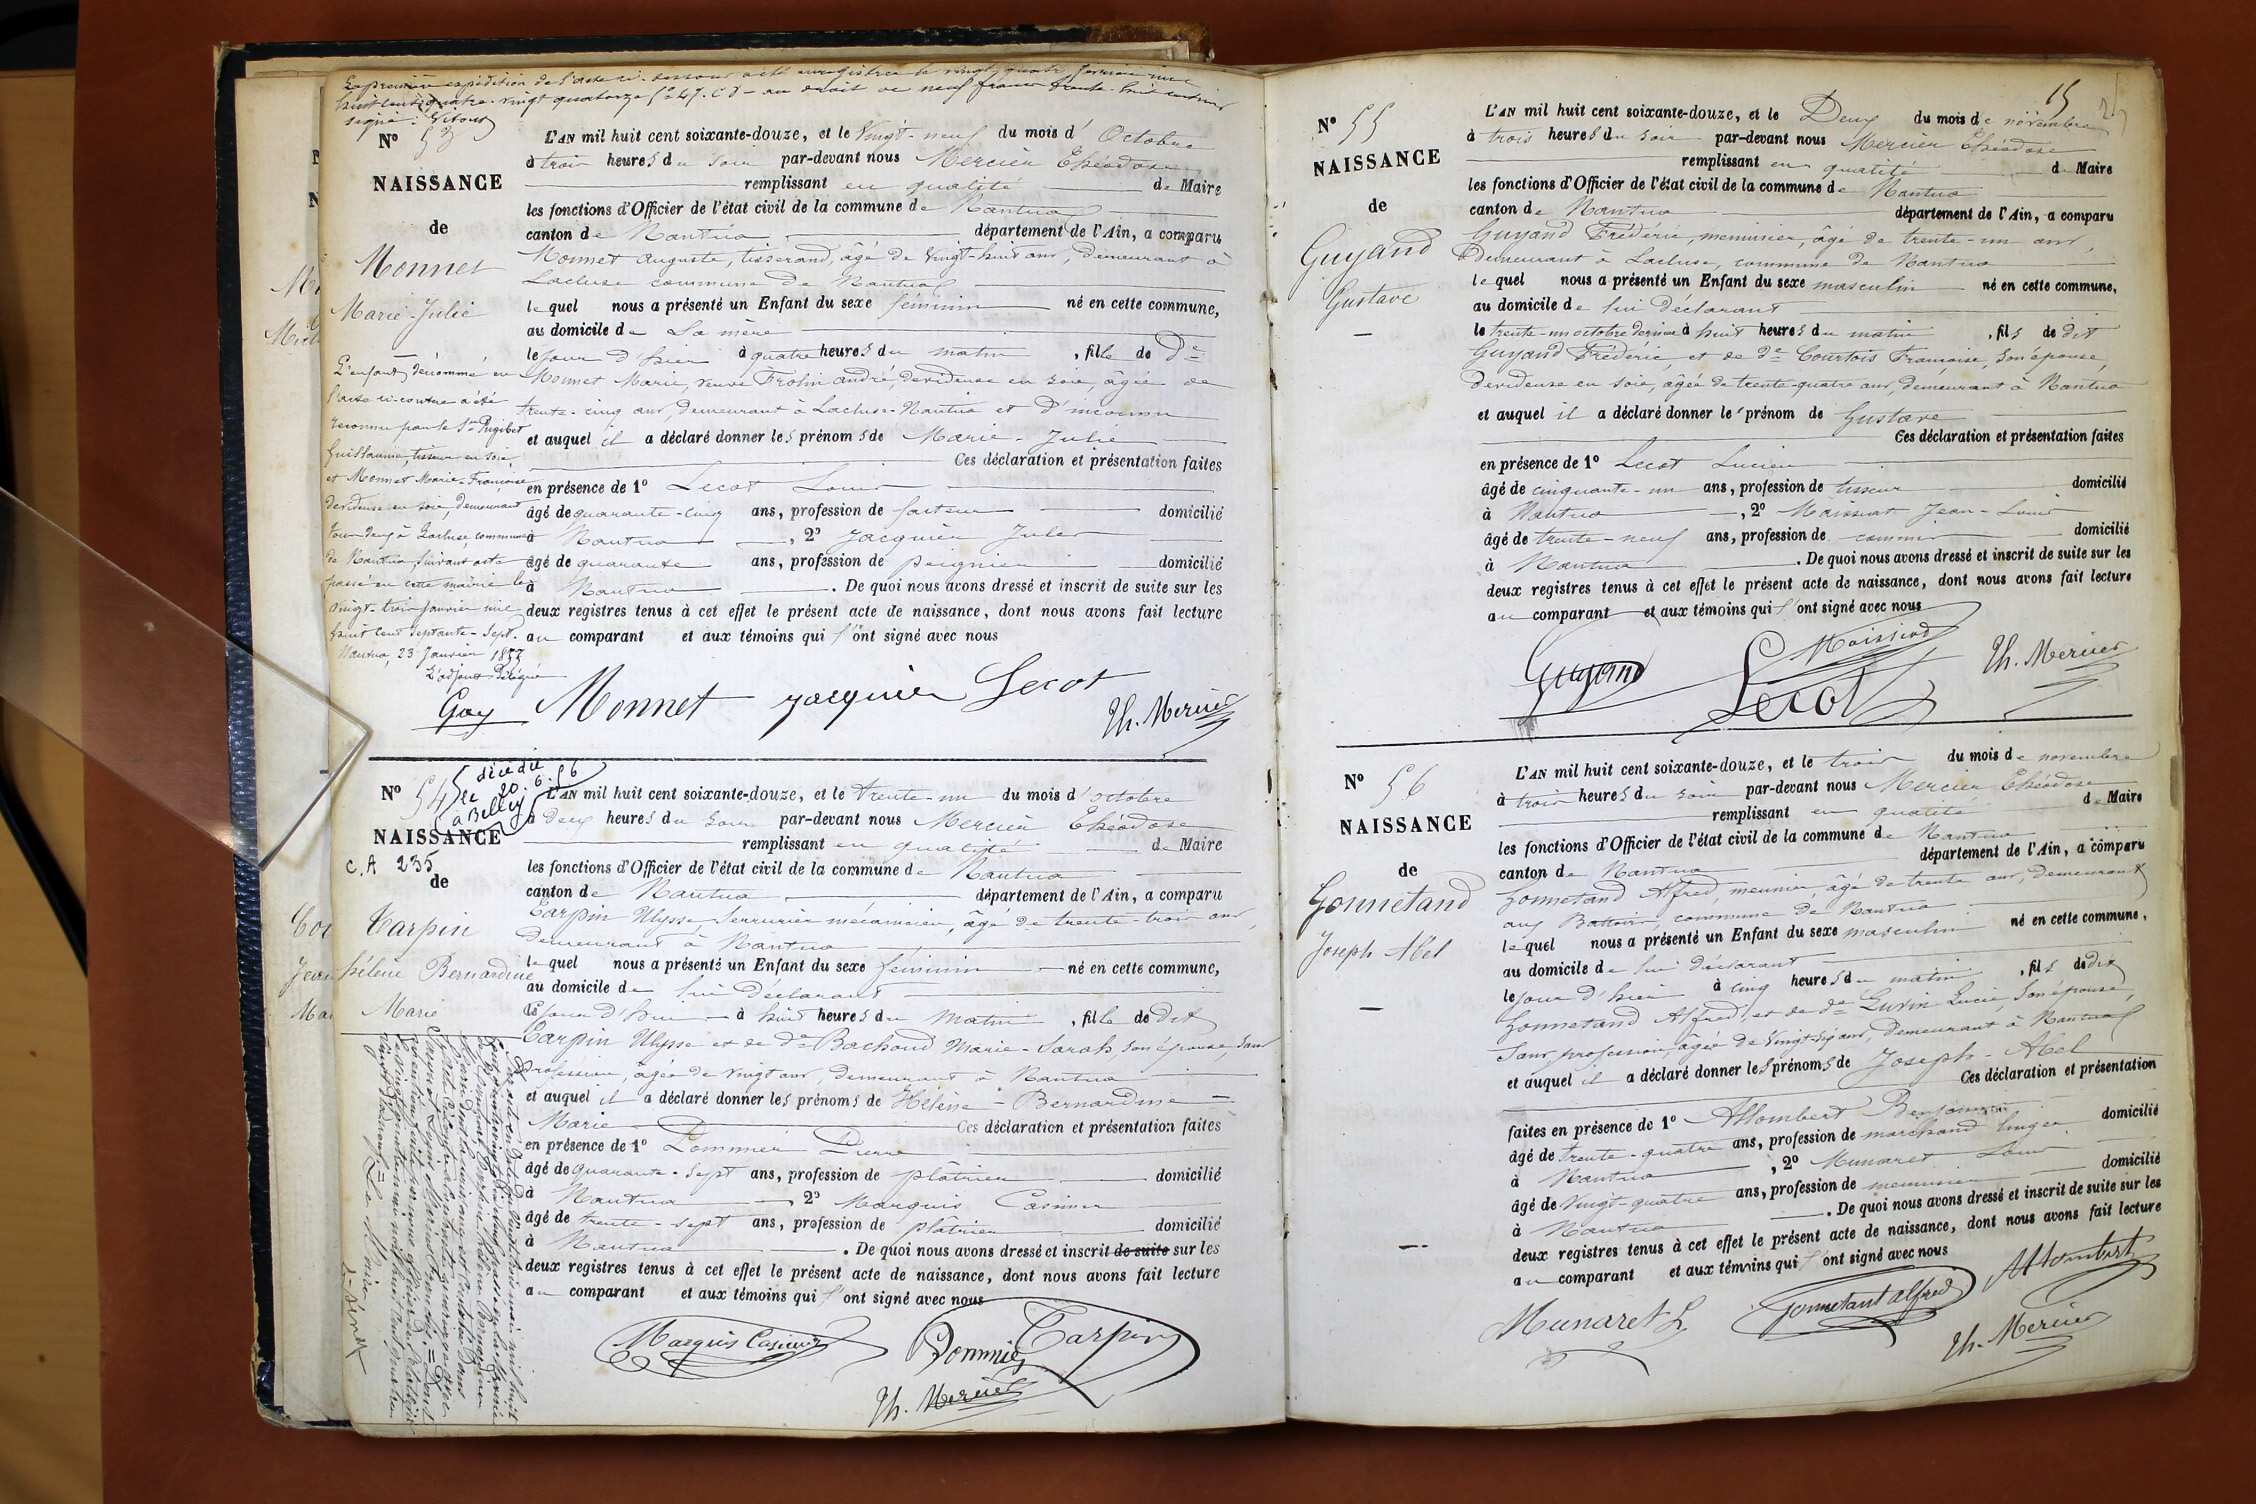 La première expédition de l'acte ci-dessous a été enregistrée le vingt quatre
huit cent quatre-vingt quatorze f° 47. C 8 - au droit de neuf francs trente-huit centimes
signé:
N° 53
NAISSANCE
de
Monnet
Marie-Julie
L'enfant dénommé en
l'acte ci-contre a été
reconnu par le Sr Pugibet
Guillaume, tisseur en soie,
et Monnet Marie-Françoise
devideuse en soie, demeurant
tous deux à Lacluse, commune
de Nantua suivant acte
passé en cette mairie le
vingt-trois janvier mil
huit cent septante-sept.
Nantua, 23 Janvier 1877
L'adjoint Délégué
Gay
L'AN mil huit cent soixante-douze, et le Vingt-neuf du mois d'Octobre
à trois heures du soir par-devant nous Mercier Théodose
remplissant en qualité de Maire
les fonctions d'Officier de l'état civil de la commune de Nantua
canton de Nantua département de l'Ain, a comparu
Monnet Auguste, tisserand, âgé de vingt-huit ans, demeurant à
Lacluse commune de Nantua
le quel nous a présenté un Enfant du sexe féminin né en cette commune,
au domicile de La mère
le jour d'hier à quatre heures du matin, fille de De
Monnet Marie, veuve Frolin André, devideuse en soie, âgée de
trente-cinq ans, demeurant à Lacluse-Nantua et d'inconnu
et auquel il a déclaré donner les prénoms de Marie-Julie
Ces déclaration et présentation faites
en présence de 1° Lecot Louis
âgé de quarante-cinq ans, profession de facteur domicilié
à Nantua, 2° Jacquier Jules
âgé de quarante ans, profession de peignier domicilié
à Nantua. De quoi nous avons dressé et inscrit de suite sur les
deux registres tenus à cet effet le présent acte de naissance, dont nous avons fait lecture
au comparant et aux témoins qui l'ont signé avec nous
Monnet Jacquier Lecot
Th. Mercier
N° 54
décédée
le 20.6.56
à Belley
NAISSANCE
C.A 235
de
Tarpin
hélène Bernardine
Marie
L'AN mil huit cent soixante-douze, et le trente-un du mois d'octobre
à deux heures du soir par-devant nous Mercier Théodose
remplissant en qualité de Maire
les fonctions d'Officier de l'état civil de la commune de Nantua
canton de Nantua département de l'Ain, a comparu
Tarpin Ulysse, Serrurier mécanicien, âgé de trente-trois ans,
demeurant à Nantua
le quel nous a présenté un Enfant du sexe féminin né en cette commune,
au domicile de lui déclarant
le jour d'hier à huit heures du matin, fille de dit
Tarpin Ulysse et de De Bachoud Marie-Sarah, son épouse, sans
profession, âgée de vingt ans, demeurant à Nantua
et auquel il a déclaré donner les prénoms de Hélène-Bernardine-
Marie Ces déclaration et présentation faites
en présence de 1° Pommier Pierre
âgé de quarante-sept ans, profession de plâtrier domicilié
à Nantua 2° Marquis Casimir
âgé de trente-sept ans, profession de plâtrier domicilié
à Nantua. De quoi nous avons dressé et inscrit de suite sur les
deux registres tenus à cet effet le présent acte de naissance, dont nous avons fait lecture
au comparant et aux témoins qui l'ont signé avec nous
Marquis Casimir Pommier Tarpin
Th. Mercier
15
N° 55
NAISSANCE
de
Guyand
Gustave
L'AN mil huit cent soixante-douze, et le Deux du mois de novembre
à trois heures du soir par-devant nous Mercier Théodose
remplissant en qualité de Maire
les fonctions d'Officier de l'état civil de la commune de Nantua
canton de Nantua département de l'Ain, a comparu
Guyand Frédéric, menuisier, âgé de trente-un ans,
Demeurant à Lacluse, commune de Nantua
le quel nous a présenté un Enfant du sexe masculin né en cette commune,
au domicile de lui déclarant
le trente-un octobre dernier à huit heures du matin, fils de dit
Guyand Frédéric, et de De Courtois Françoise, son épouse,
devideuse en soie, âgée de trente-quatre ans, demeurant à Nantua
et auquel il a déclaré donner le prénom de Gustave
Ces déclaration et présentation faites
en présence de 1° Lecot Lucien
âgé de cinquante-un ans, profession de tisseur domicilié
à Nantua, 2° Maissiat Jean-Louis
âgé de trente-neuf ans, profession de commis domicilié
à Nantua. De quoi nous avons dressé et inscrit de suite sur les
deux registres tenus à cet effet le présent acte de naissance, dont nous avons fait lecture
au comparant et aux témoins qui l'ont signé avec nous
Guyand Lecot Maissiat Th. Mercier
N° 56
NAISSANCE
de
Gonnetand
Joseph Abel
L'AN mil huit cent soixante-douze, et le trois du mois de novembre
à trois heures du soir par-devant nous Mercier Théodose
remplissant en qualité de Maire
les fonctions d'Officier de l'état civil de la commune de Nantua
canton de Nantua département de l'Ain, a comparu
Gonnetand Alfred, meunier, âgé de trente ans, demeurant
aux Battoirs, commune de Nantua
le quel nous a présenté un Enfant du sexe masculin né en cette commune,
au domicile de lui déclarant
le jour d'hier à cinq heures du matin, fils de dit
Gonnetand Alfred, et de De Gurin Lucie, son épouse,
sans profession, âgée de vingt-six ans, demeurant à Nantua
et auquel il a déclaré donner les prénoms de Joseph-Abel
Ces déclaration et présentation
faites en présence de 1° Allombert Benjamin
âgé de trente-quatre ans, profession de marchand linger domicilié
à Nantua, 2° Munaret Louis
âgé de vingt-quatre ans, profession de menuisier domicilié
à Nantua. De quoi nous avons dressé et inscrit de suite sur les
deux registres tenus à cet effet le présent acte de naissance, dont nous avons fait lecture
au comparant et aux témoins qui l'ont signé avec nous
Munaret L Gonnetant alfred Allombert
Th. Mercier